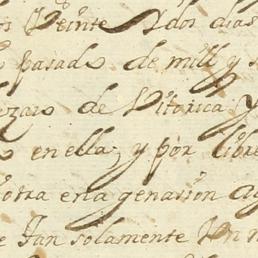 Veinte Y dos dias
pasado de mill y s
de Vitorica y
en ella; y por libre
otra en a genasion
e Tan solamente Un